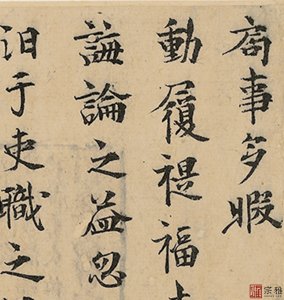 局事多暇
動履禔福
誨論之益忽
汩于吏職之